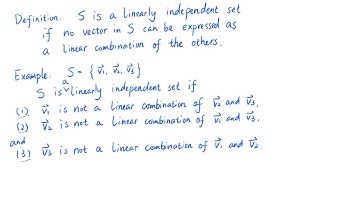 Definition: S is a linearly independent set
if no vector in S can be expressed as
a linear combination of the others.
Example: S = { v⃗₁, v⃗₂, v⃗₃ }
S is a linearly independent set if
(1) v⃗₁ is not a linear combination of v⃗₂ and v⃗₃,
(2) v⃗₂ is not a linear combination of v⃗₁ and v⃗₃,
and
(3) v⃗₃ is not a linear combination of v⃗₁ and v⃗₂.